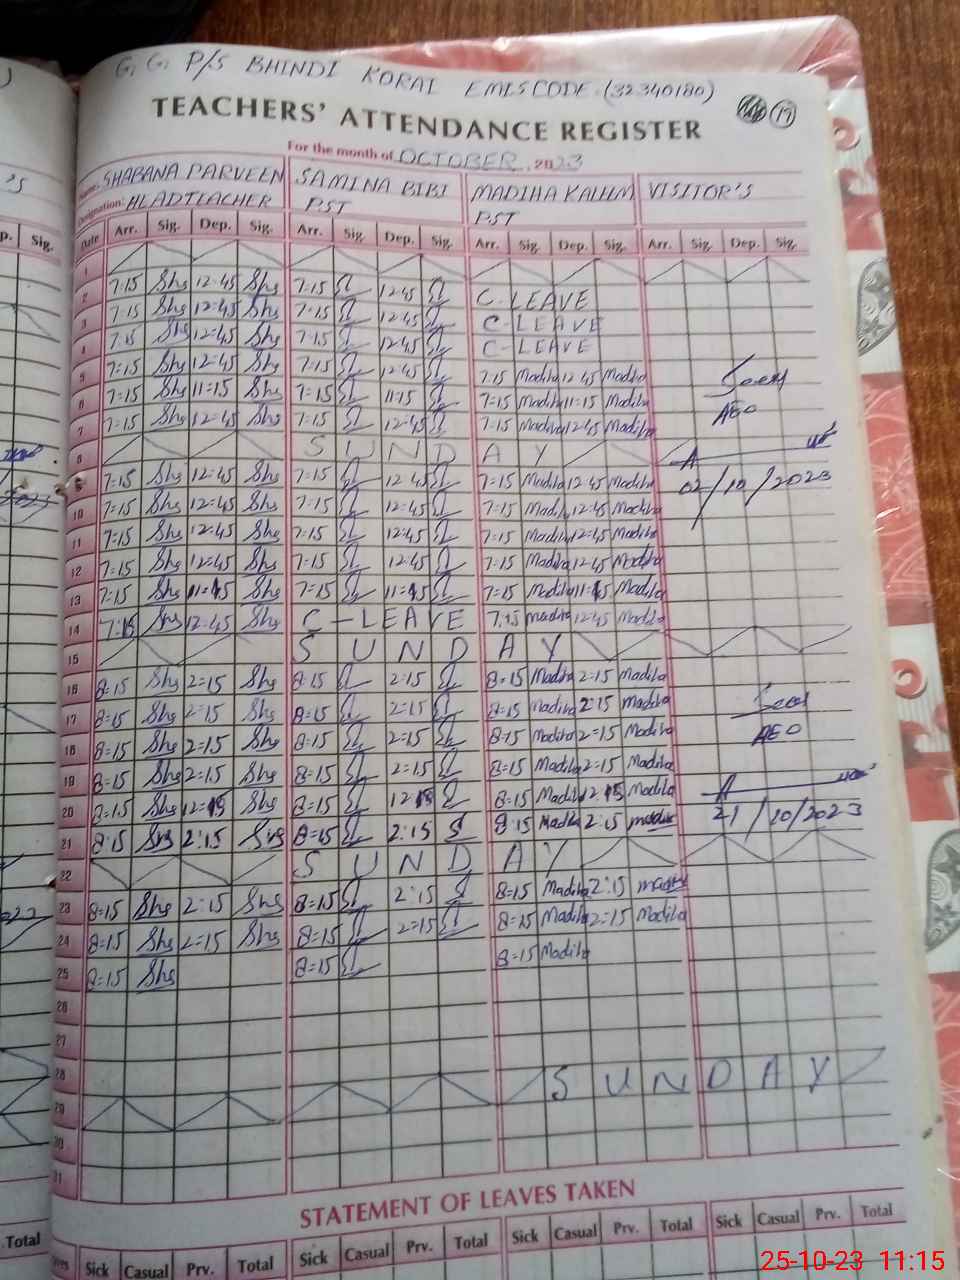 G. G. P/S BHINDI KORAI EMIS CODE. (32340180)
TEACHERS' ATTENDANCE REGISTER
19
For the month of OCTOBER, 2023
Name: SHABANA PARVEEN SAMINA BIBI MADIHA KALUM VISITOR'S
Designation: HEADTEACHER PST PST
Date Arr. Sig. Dep. Sig. Arr. Sig. Dep. Sig. Arr. Sig. Dep. Sig. Arr. Sig. Dep. Sig.
1
2 7:15 Shs 12:45 Shs 7:15 12:45 C-LEAVE
3 7:15 Shs 12:45 Shs 7:15 12:45 C-LEAVE
4 7:15 Shs 12:45 Shs 7:15 12:45 C-LEAVE
5 7:15 Shs 12:45 Shs 7:15 12:45 7:15 Madiha 12:45 Madiha
6 7:15 Shs 11:15 Shs 7:15 11:15 7:15 Madiha 11:15 Madiha AEO
7 7:15 Shs 12:45 Shs 7:15 12:45 7:15 Madiha 12:45 Madiha
8 SUNDAY
9 7:15 Shs 12:45 Shs 7:15 12:45 7:15 Madiha 12:45 Madiha 02/10/2023
10 7:15 Shs 12:45 Shs 7:15 12:45 7:15 Madiha 12:45 Madiha
11 7:15 Shs 12:45 Shs 7:15 12:45 7:15 Madiha 12:45 Madiha
12 7:15 Shs 12:45 Shs 7:15 12:45 7:15 Madiha 12:45 Madiha
13 7:15 Shs Shs 7:15 7:15 Madiha Madiha
14 7:15 Shs 12:45 Shs C-LEAVE 7:15 Madiha 12:45 Madiha
15 SUNDAY
16 8:15 Shs 2:15 Shs 8:15 2:15 8:15 Madiha 2:15 Madiha
17 8:15 Shs 2:15 Shs 8:15 2:15 8:15 Madiha 2:15 Madiha
18 8:15 Shs 2:15 Shs 8:15 2:15 8:15 Madiha 2:15 Madiha AEO
19 8:15 Shs 2:15 Shs 8:15 2:15 8:15 Madiha 2:15 Madiha
20 8:15 Shs Shs 8:15 8:15 Madiha Madiha
21 8:15 Shs 2:15 Shs 8:15 2:15 8:15 Madiha 2:15 Madiha 21/10/2023
22 SUNDAY
23 8:15 Shs 2:15 Shs 8:15 2:15 8:15 Madiha 2:15 Madiha
24 8:15 Shs 2:15 Shs 8:15 2:15 8:15 Madiha 2:15 Madiha
25 8:15 Shs 8:15 8:15 Madiha
26
27
28
29 SUNDAY
30
31
STATEMENT OF LEAVES TAKEN
Sick Casual Prv. Total Sick Casual Prv. Total Sick Casual Prv. Total Sick Casual Prv. Total
25-10-23 11:15